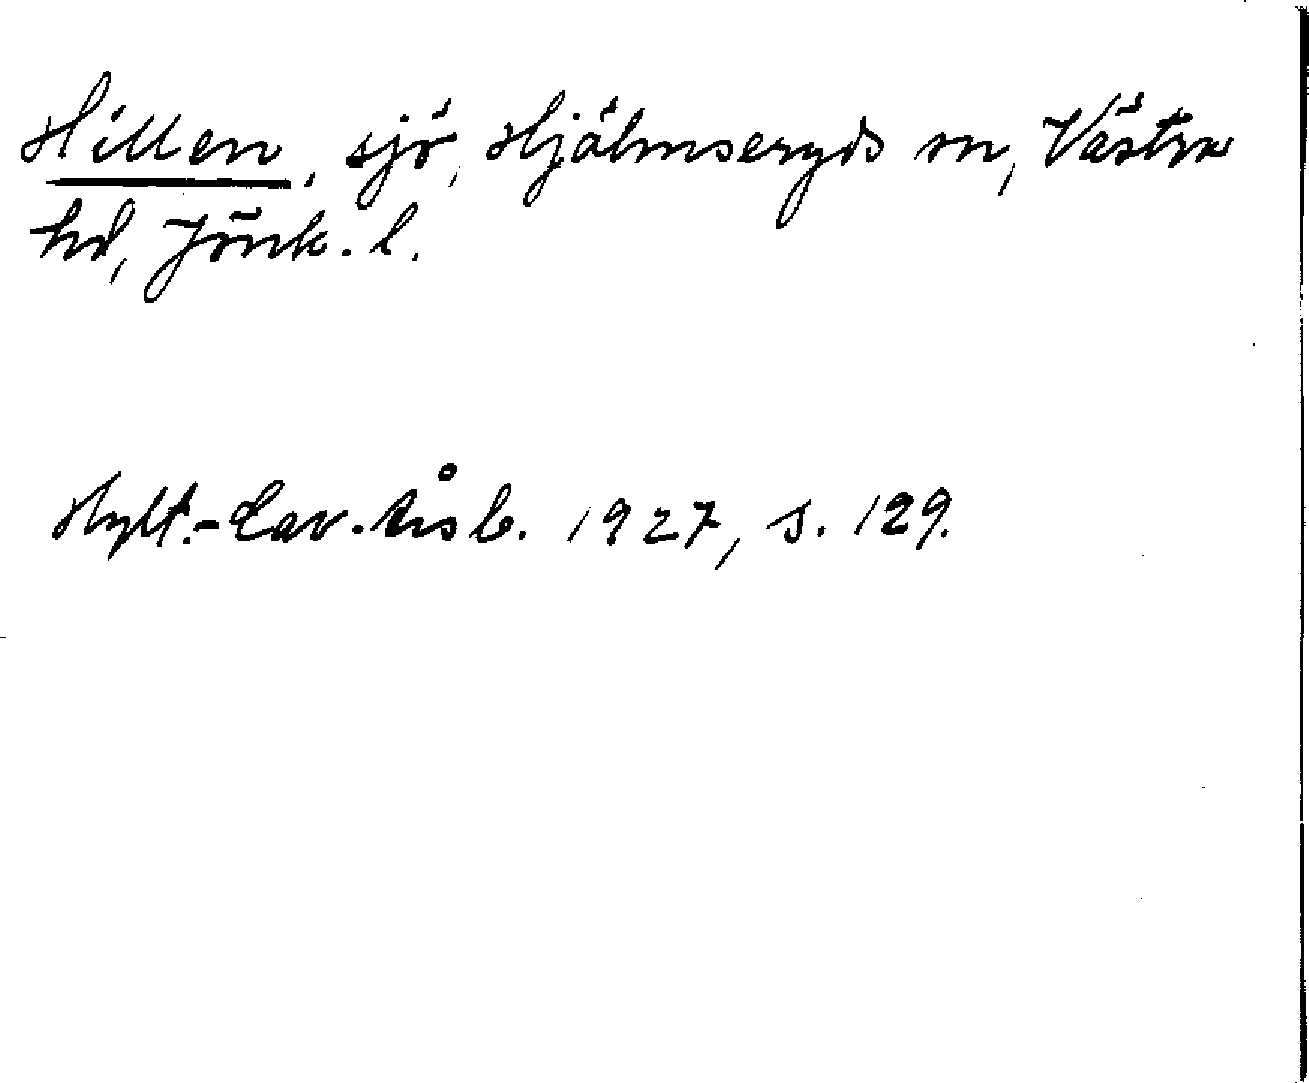 Hillen, sjö, Hjälmseryds sn, Västra
hd, Jönk. l.
Hylt.-Cav. årsb. 1927, s. 129.